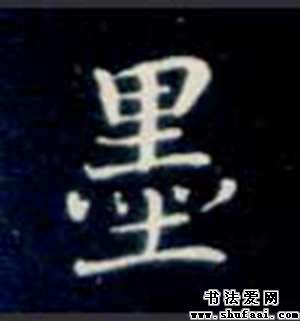 墨
书法爱网
www.shufaai.com